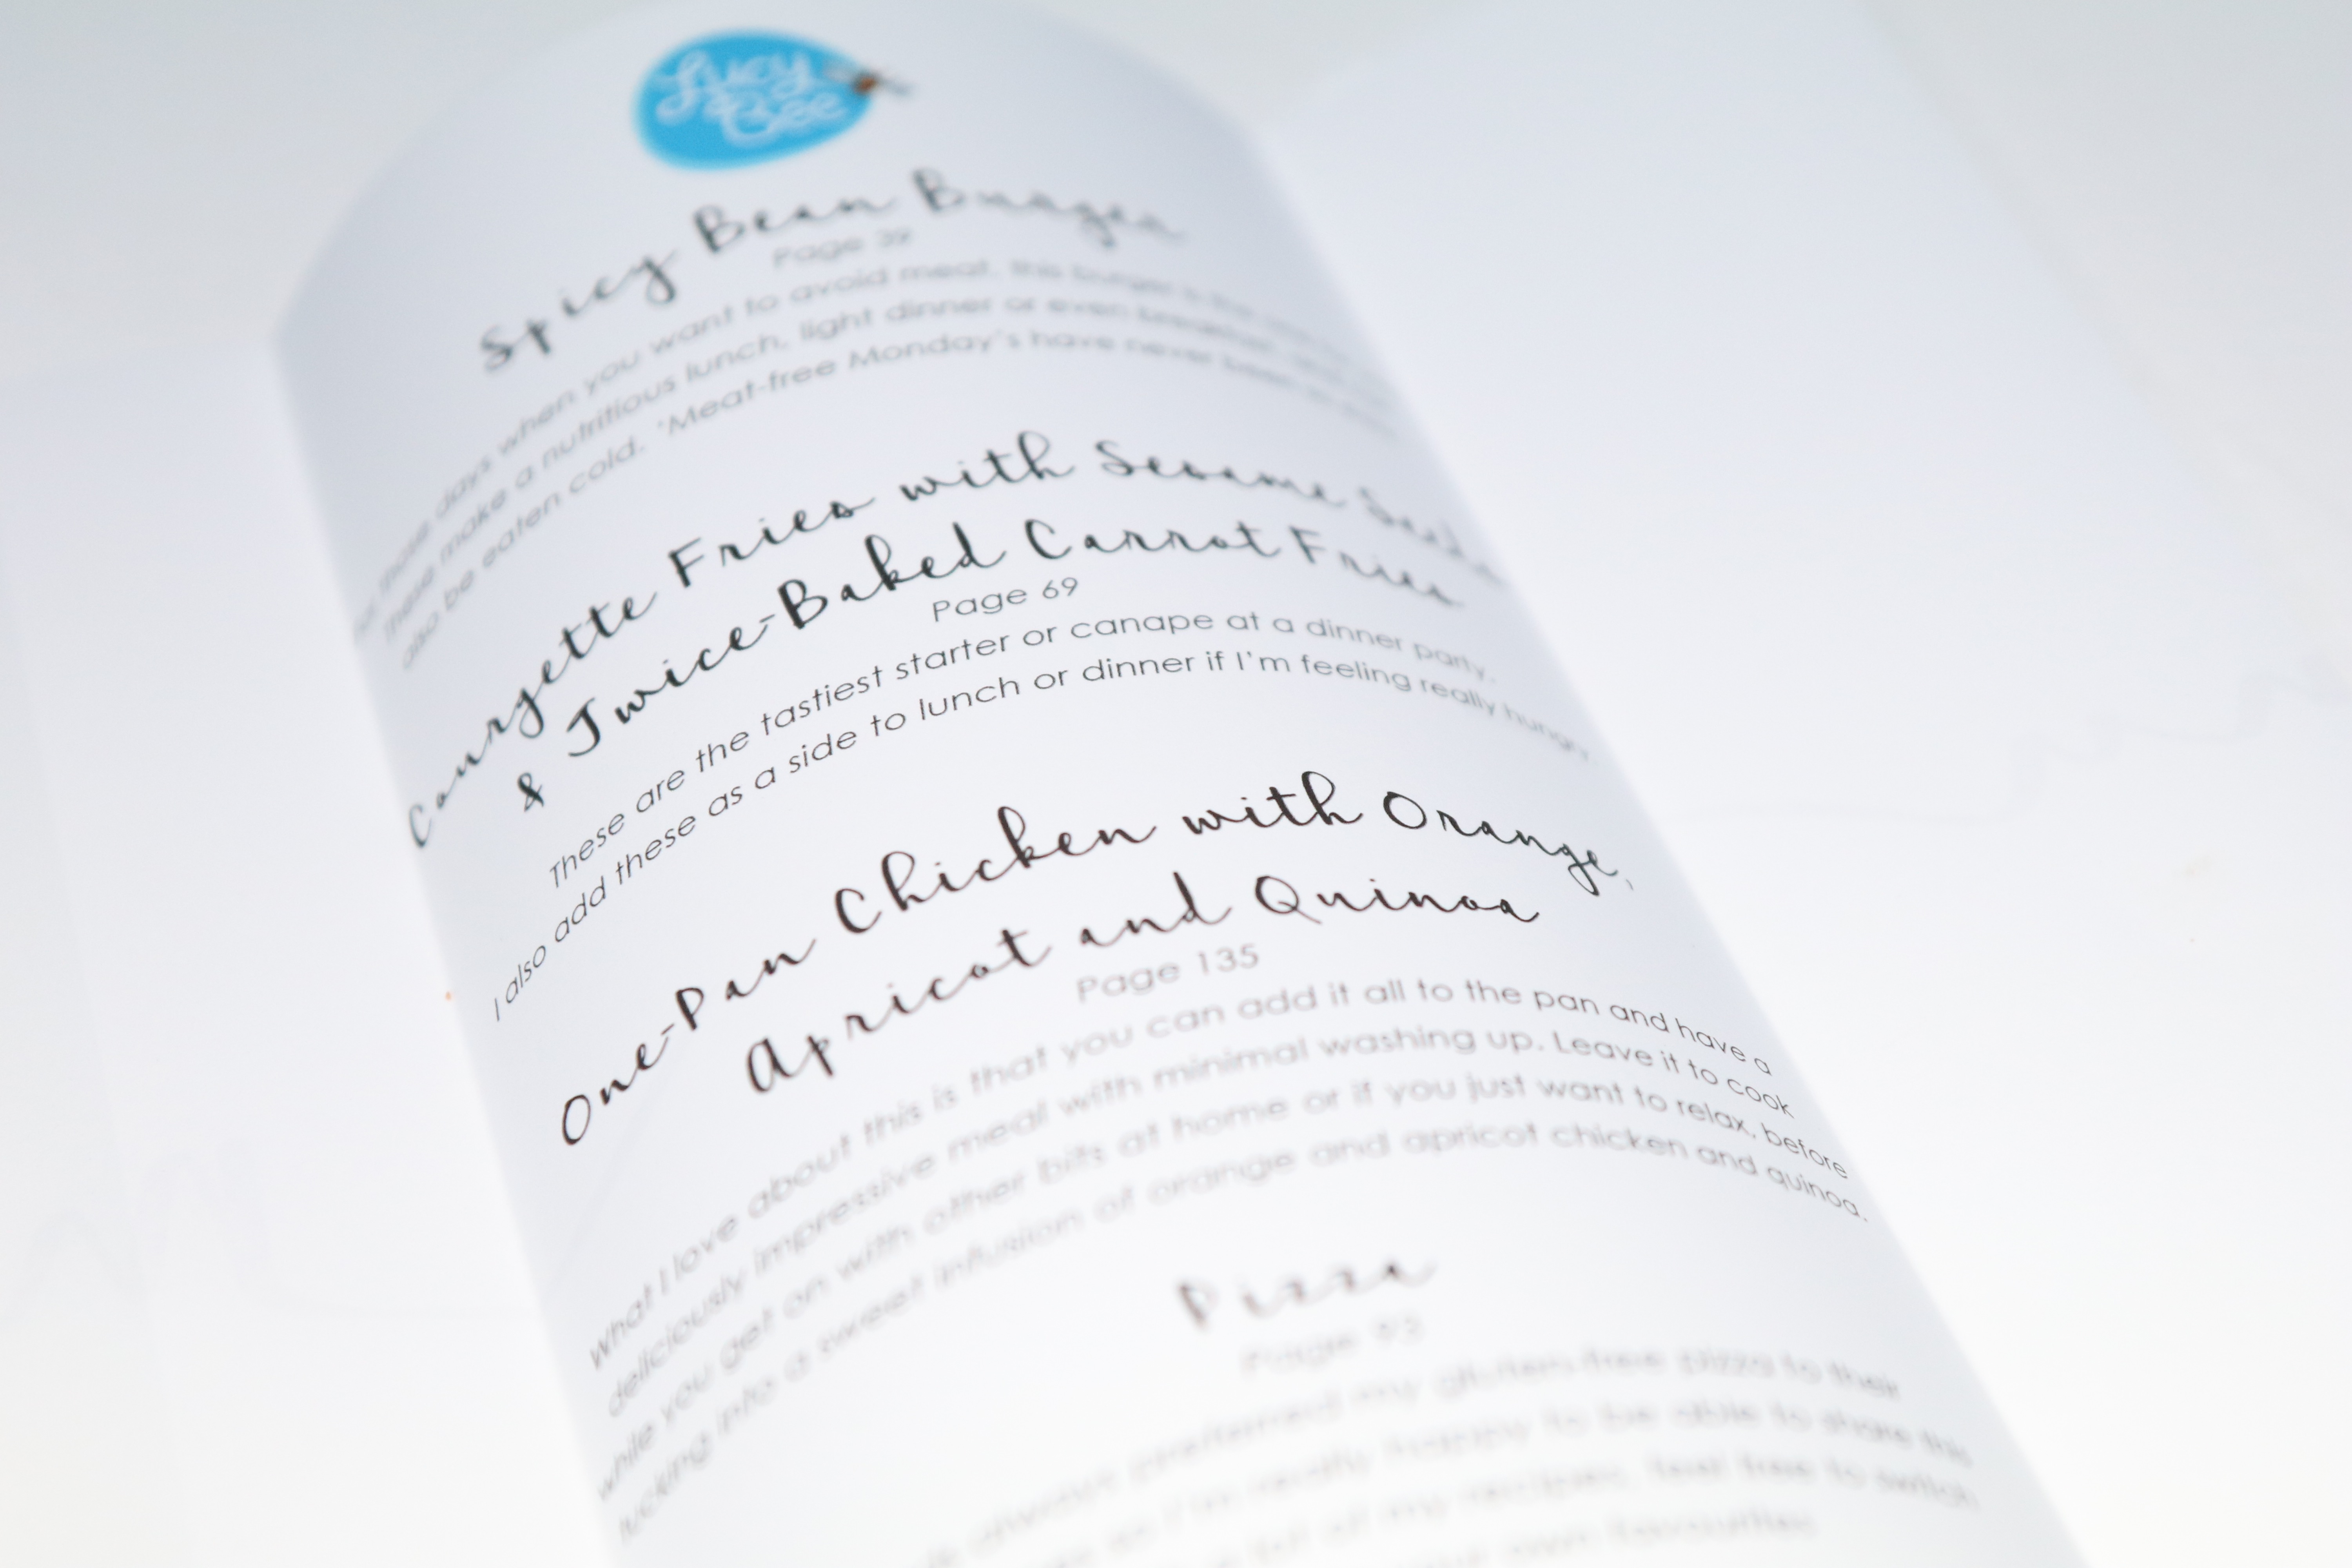 Lucy
Bee
Spicy Bean Burger
Page 39
For those days when you want to avoid meat, this burger is the
These make a nutritious lunch, light dinner or even breakfast, and can
also be eaten cold. 'Meat-free Monday's have never been so
Courgette Fries with Sesame Seeds
& Twice-Baked Carrot Fries
Page 69
These are the tastiest starter or canape at a dinner party.
I also add these as a side to lunch or dinner if I'm feeling really hungry.
One-Pan Chicken with Orange,
Apricot and Quinoa
Page 135
What I love about this is that you can add it all to the pan and have a
deliciously impressive meal with minimal washing up. Leave it to cook
while you get on with other bits at home or if you just want to relax, before
tucking into a sweet infusion of orange and apricot chicken and quinoa.
Pizza
Page 93
always preferred my gluten-free pizza to their
so I'm really happy to be able to share this
a lot of my recipes, feel free to switch
your own favourites